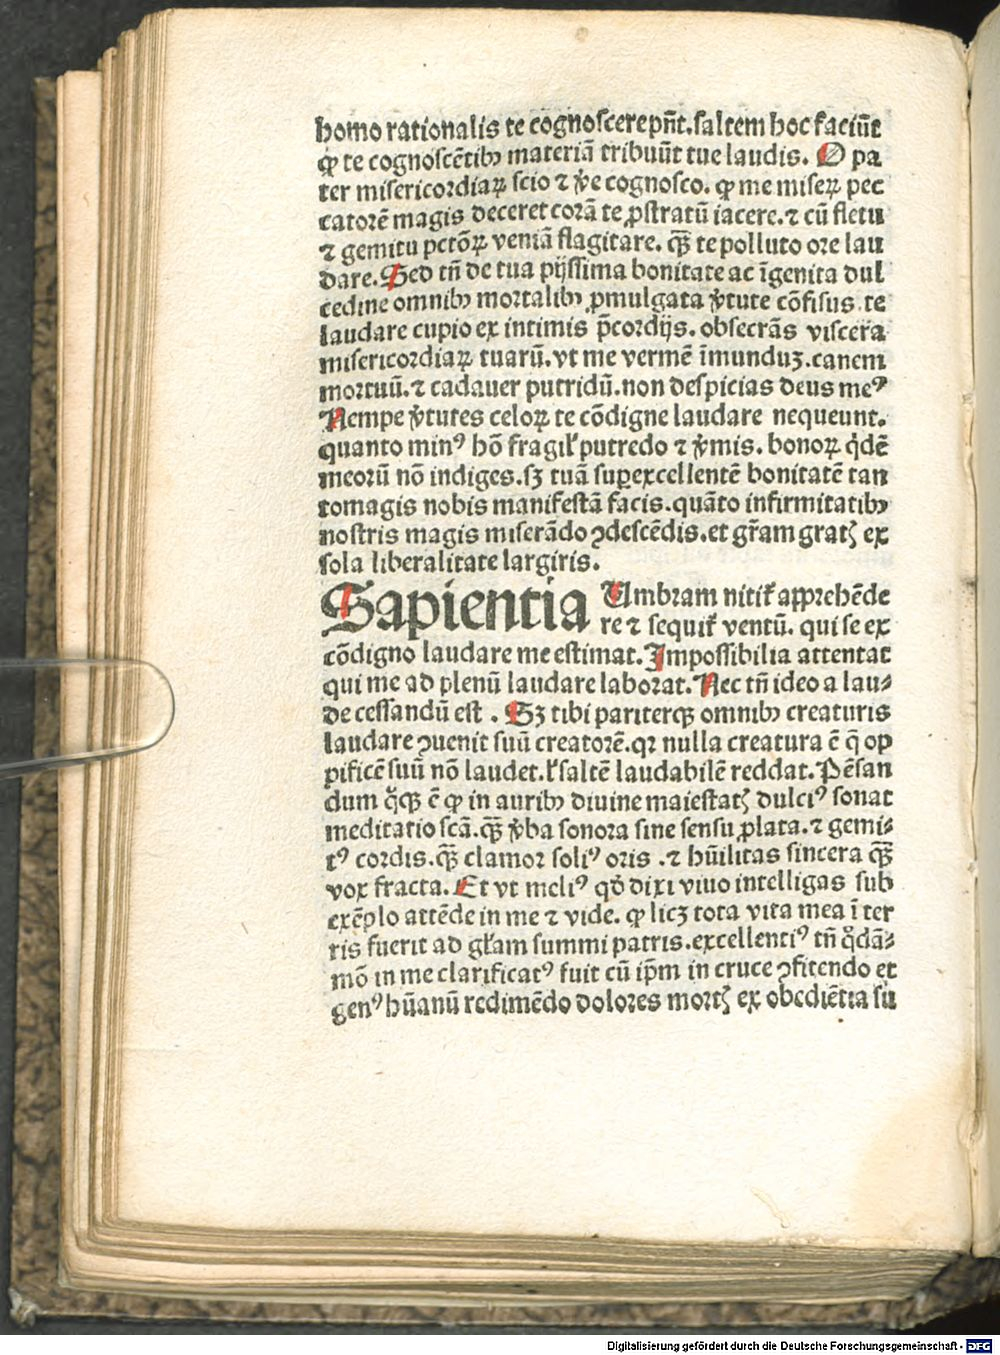 homo rationalis te cognoscere pn̄t. saltem hoc faciūt
ꝙ te cognoscētibꝰ materiā tribuūt tue laudis. O pa
ter misericordiaꝝ scio ⁊ v̄e cognosco. ꝙ me miseꝝ pec
catorē magis deceret corā te ꝓstratū iacere. ⁊ cū fletu
⁊ gemitu pctōꝝ veniā flagitare. qȝ̄ te polluto ore lau
dare. Sed tn̄ de tua pijssima bonitate ac īgenita dul
cedine omnibꝰ mortalibꝰ ꝓmulgata v̄tute cōfisus te
laudare cupio ex intimis p̄cordijs. obsecrās viscera
misericordiaꝝ tuarū. vt me vermē īmunduȝ. canem
mortuū. ⁊ cadauer putridū. non despicias deus meꝰ
Nempe v̄tutes celoꝝ te cōdigne laudare nequeunt.
quanto minꝰ hō fragil̛ putredo ⁊ v̄mis. bonoꝝ q̇dē
meorū nō indiges. sȝ tuā suꝑexcellentē bonitatē tan
tomagis nobis manifestā facis. quāto infirmitatibꝰ
nostris magis miserādo ꝯdescēdis. et gr̄am gratꝭ ex
sola liberalitate largiris.
Sapientia Umbram nitit̛ apprehēde
re ⁊ sequit̛ ventū. qui se ex
cōdigno laudare me estimat. Impossibilia attentat
qui me ad plenū laudare laborat. Nec tn̄ ideo a lau⸗
de cessandū est. Sȝ tibi pariterqȝ omnibꝰ creaturis
laudare ꝯuenit suū creatorē. qꝛ nulla creatura ē q̄ op
pificē suū nō laudet. l̛ saltē laudabilē reddat. Pēsan
dum q̊qȝ ē ꝙ in auribꝰ diuine maiestatꝭ dulciꝰ sonat
meditatio scā. qȝ̄ v̄ba sonora sine sensu ꝓlata. ⁊ gemi⸗
tꝰ cordis. qȝ̄ clamor soliꝰ oris. ⁊ hūilitas sincera qȝ̄
vox fracta. Et vt meliꝰ qd̄ dixi viuo intelligas sub
exēplo attēde in me ⁊ vide. ꝙ licȝ tota vita mea ī ter
ris fuerit ad gl̄am summi patris. excellentiꝰ tn̄ q̊dā⸗
mō in me clarificatꝰ fuit cū ip̄m in cruce ꝯfitendo et
genꝰ hūanū redimēdo dolores mortꝭ ex obediētia su
Digitalisierung gefördert durch die Deutsche Forschungsgemeinschaft - DFG